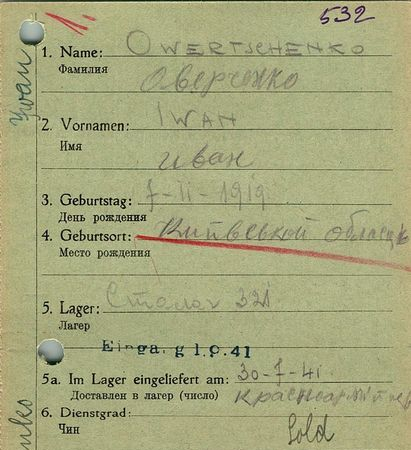 532
1. Name: OWERTSCHENKO
Фамилия Оверченко
2. Vornamen: IWAN
Имя иван
3. Geburtstag: 7-II-1919
День рождения
4. Geburtsort: Київської област
Место рождения
5. Lager: Сталаг 321
Лагер
Eing. 1.9.41
5a. Im Lager eingeliefert am: 30-7-41
Доставлен в лагер (число) Красноармеец
6. Dienstgrad: Sold
Чин
Iwan
nko